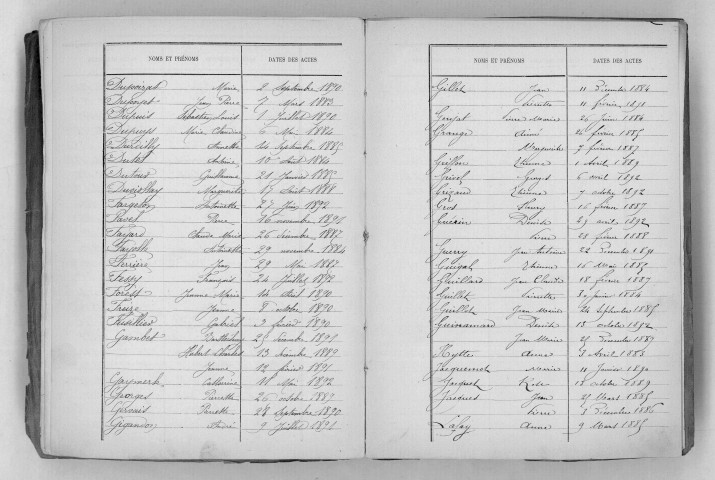 NOMS ET PRÉNOMS DATES DES ACTES
Dupoizat Marie 2 Septembre 1890
Jean Pierre 7 Mars 1883
Dupuis Sébastien Louis 1 Juillet 1890
Dupuys Marie Claudine 6 Mai 1884
Durelly Annette 24 Septembre 1885
Antoine 10 Août 1884
Dutour Guillaume 21 Janvier 1885
Marguerite 17 Août 1888
Fargeton Antoinette 27 Juin 1892
Favet Pierre 16 novembre 1891
Fayard Claude Marie 26 Décembre 1887
Fayolle Antoinette 29 novembre 1884
Ferrière Jean 29 Mai 1883
Fessy François 24 Juillet 1892
Forest Jeanne Marie 14 Août 1890
Freize Jeanne 8 octobre 1890
Gabriel 3 février 1890
Gambet Barthélemy 25 Décembre 1891
Hubert Charles 13 Décembre 1889
Jeanne 12 février 1891
Catherine 11 Mai 1892
Georges Pierrette 26 octobre 1889
Gervais Pierrette 28 Septembre 1890
Gigandon André 9 Juillet 1891
NOMS ET PRÉNOMS DATES DES ACTES
Gillet Jean 11 Décembre 1884
Pierrette 11 février 1890
Goujat Pierre Marie 24 Juin 1884
Grange Aimé 14 février 1885
Marguerite 7 février 1887
Grillon Etienne 1 Avril 1889
Grivel Georges 6 avril 1892
Grizard Etienne 7 octobre 1892
Gros Fleury 16 février 1887
Guérin Benoite 29 avril 1892
Pierre 28 février 1888
Guerry Jean Antoine 22 Décembre 1891
Guigal Etienne 16 Mai 1889
Guillard Jean Claude 18 février 1887
Guillet Pierrette 30 Juin 1884
Guillot Jean Marie 24 Septembre 1885
Guinamard Benoite 13 octobre 1892
Jean Marie 25 Décembre 1887
Hytte Anne 3 Avril 1883
Jacquemot Marie 11 Janvier 1890
Jacquet Rose 12 octobre 1889
Jacques Jean 27 Mars 1885
Pierre 3 Décembre 1886
Lafay Anne 9 Mars 1885